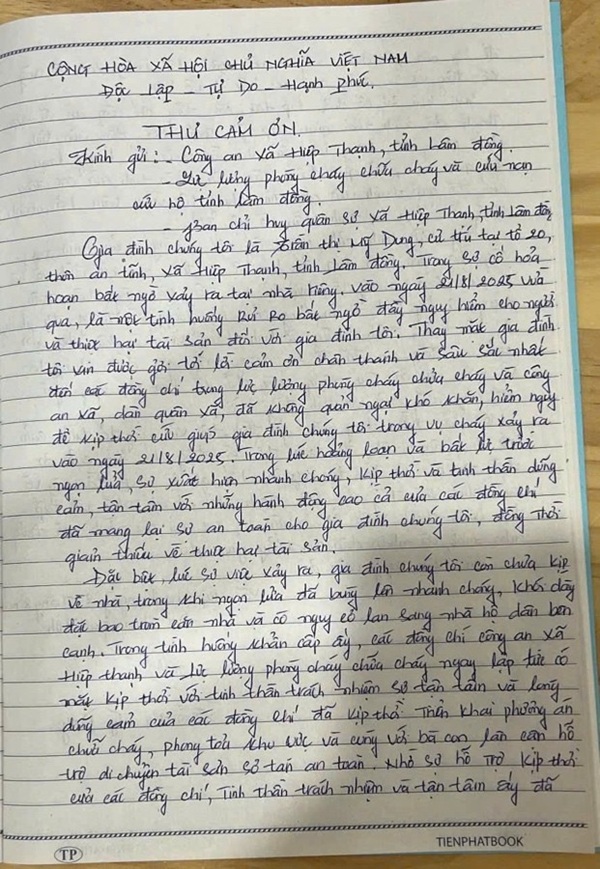 CỘNG HÒA XÃ HỘI CHỦ NGHĨA VIỆT NAM
Độc Lập - Tự Do - Hạnh phúc.
THƯ CẢM ƠN.
Kính gửi: - Công an xã Hiệp Thạnh, tỉnh Lâm đồng.
- Lực lượng phòng cháy chữa cháy và cứu nạn
cứu hộ tỉnh Lâm đồng.
- Ban chỉ huy quân sự xã Hiệp Thạnh, tỉnh Lâm đồng
Gia đình chúng tôi là Trần thị Mỹ Dung, cư trú tại tổ 20,
thôn an tĩnh, xã Hiệp Thạnh, tỉnh Lâm đồng. Trong sự cố hỏa
hoạn bất ngờ xảy ra tại nhà riêng, vào ngày 21/8/2025 vừa
qua, là một tình huống Rủi Ro bất ngờ đầy nguy hiểm cho người
và thiệt hại tài sản đối với gia đình tôi. Thay mặt gia đình
tôi xin được gởi tới lời cảm ơn chân thành và sâu sắc nhất
đến các đồng chí trong lực lượng phòng cháy chữa cháy và công
an xã, dân quân xã, đã không quản ngại khó khăn, hiểm nguy
để kịp thời cứu giúp gia đình chúng tôi trong vụ cháy xảy ra
vào ngày 21/8/2025. Trong lúc hoảng loạn và bất lực trước
ngọn lửa, sự xuất hiện nhanh chóng, kịp thời và tinh thần dũng
cảm, tận tâm với những hành động cao cả của các đồng chí
đã mang lại sự an toàn cho gia đình chúng tôi, đồng thời
giảm thiểu về thiệt hại tài sản.
Đặc biệt, lúc sự việc xảy ra, gia đình chúng tôi còn chưa kịp
về nhà, trong khi ngọn lửa đã bùng lên nhanh chóng, khói dày
đặc bao trùm căn nhà và có nguy cơ lan sang nhà hộ dân bên
cạnh. Trong tình huống khẩn cấp ấy, các đồng chí công an xã
Hiệp thạnh và lực lượng phòng cháy chữa cháy ngay lập tức có
mặt kịp thời với tinh thần trách nhiệm sự tận tâm và lòng
dũng cảm của các đồng chí đã kịp thời Triển khai phương án
chữa cháy, phong tỏa khu vực và cùng với bà con lân cận hỗ
trợ di chuyển tài sản sơ tán an toàn. Nhờ sự hỗ trợ kịp thời
của các đồng chí, Tinh thần trách nhiệm và tận tâm ấy đã
TP
TIENPHATBOOK